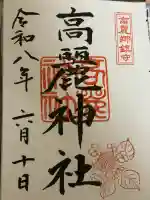 高麗郷鎮守
高麗神社
令和八年
六月十日